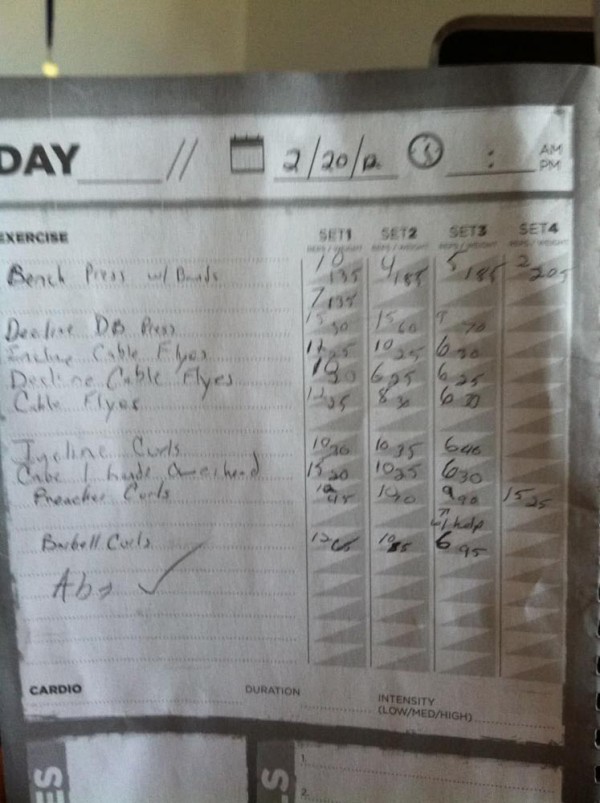 DAY // 2/20/12 : AM
PM
EXERCISE SET1 SET2 SET3 SET4
REPS / WEIGHT REPS / WEIGHT REPS / WEIGHT REPS / WEIGHT
Bench Press w/ Bands 10 135 4 185 5 185 2 205
7 135
Decline DB Press 15 50 15 60 70
Incline Cable Flyes 12 25 10 25 6 30
Decline Cable Flyes 10 30 6 25 6 25
Cable Flyes 12 25 8 30 6 70
Incline Curls 10 30 10 35 6 40
Cable 1 hande Overhead 15 20 10 25 6 30
Preacher Curls 10 9 90 15 25
1 help
Barbell Curls 12 65 10 85 6 95
Abs ✓
CARDIO DURATION INTENSITY
(LOW/MED/HIGH)
1.
2.